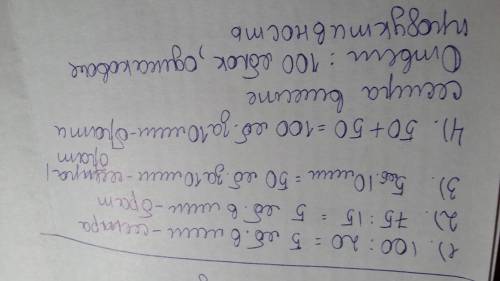 1). 100 : 20 = 5 яб. в мин - сестра
2). 75 : 15 = 5 яб. в мин - брат
3). 5 яб. 10 мин = 50 яб. за 10 мин - сестра/
брат
4). 50 + 50 = 100 яб. за 10 мин - брат и
сестра вместе
Ответ: 100 яблок, одинаковая
продуктивность